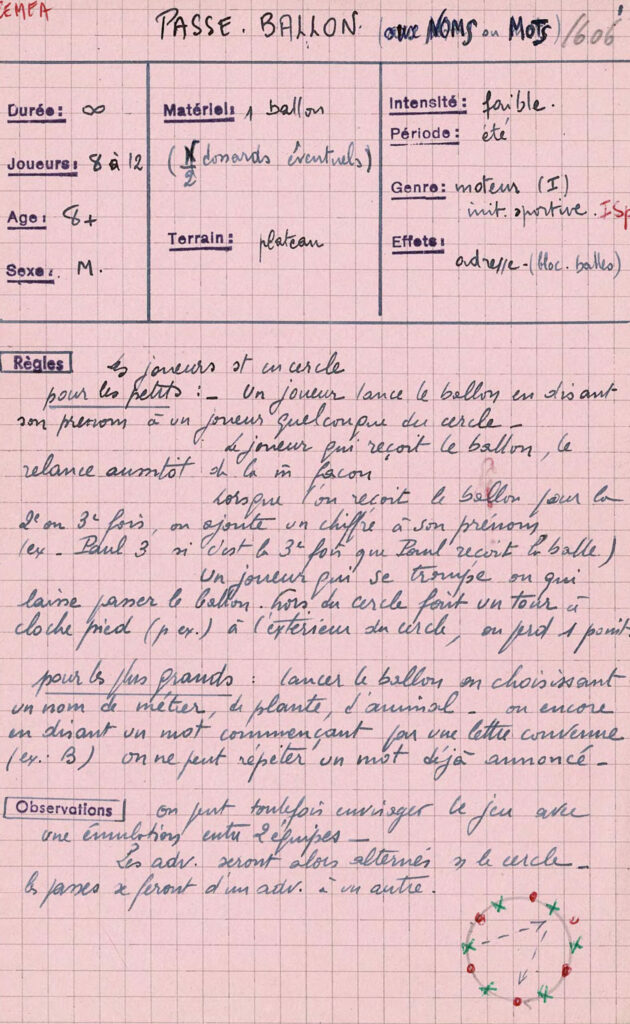 CEMEA
PASSE. BALLON. (aux NOMS ou MOTS) /606
Durée: ∞
Joueurs: 8 à 12
Age: 8+
Sexe: M.
Matériel: 1 ballon
(N/2 dossards éventuels)
Terrain: plateau
Intensité: faible.
Période: été
Genre: moteur (I)
init. sportive. ISp
Effets:
adresse - (bloc. balles)
Règles Les joueurs st en cercle
pour les petits : - Un joueur lance le ballon en disant
son prénom à un joueur quelconque du cercle -
Le joueur qui reçoit le ballon, le
relance aussitôt de la m̄ façon
Lorsque l'on reçoit le ballon pour la
2e ou 3e fois, on ajoute un chiffre à son prénom
(ex - Paul 3 si c'est la 3e fois que Paul reçoit la balle)
Un joueur qui se trompe ou qui
laisse passer le ballon. hors du cercle fait un tour à
cloche pied (p ex.) à l'extérieur du cercle, ou perd 1 point.
pour les plus grands : lancer le ballon en choisissant
un nom de métier, de plante, d'animal - ou encore
en disant un mot commençant par une lettre convenue
(ex: B) on ne peut répéter un mot déjà annoncé -
Observations on peut toutefois envisager le jeu avec
une émulation entre 2 équipes -
Les adv. seront alors alternés s le cercle -
les passes se feront d'un adv. à un autre.